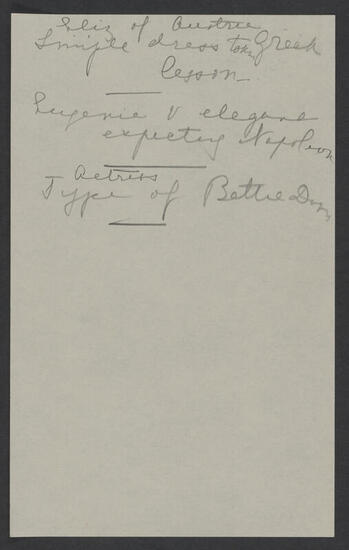 Eliz of Austria
Simple dress take Greek
lesson
Eugenie V elegant
expecting Napoleon
Actress
Type of Bettie Davis